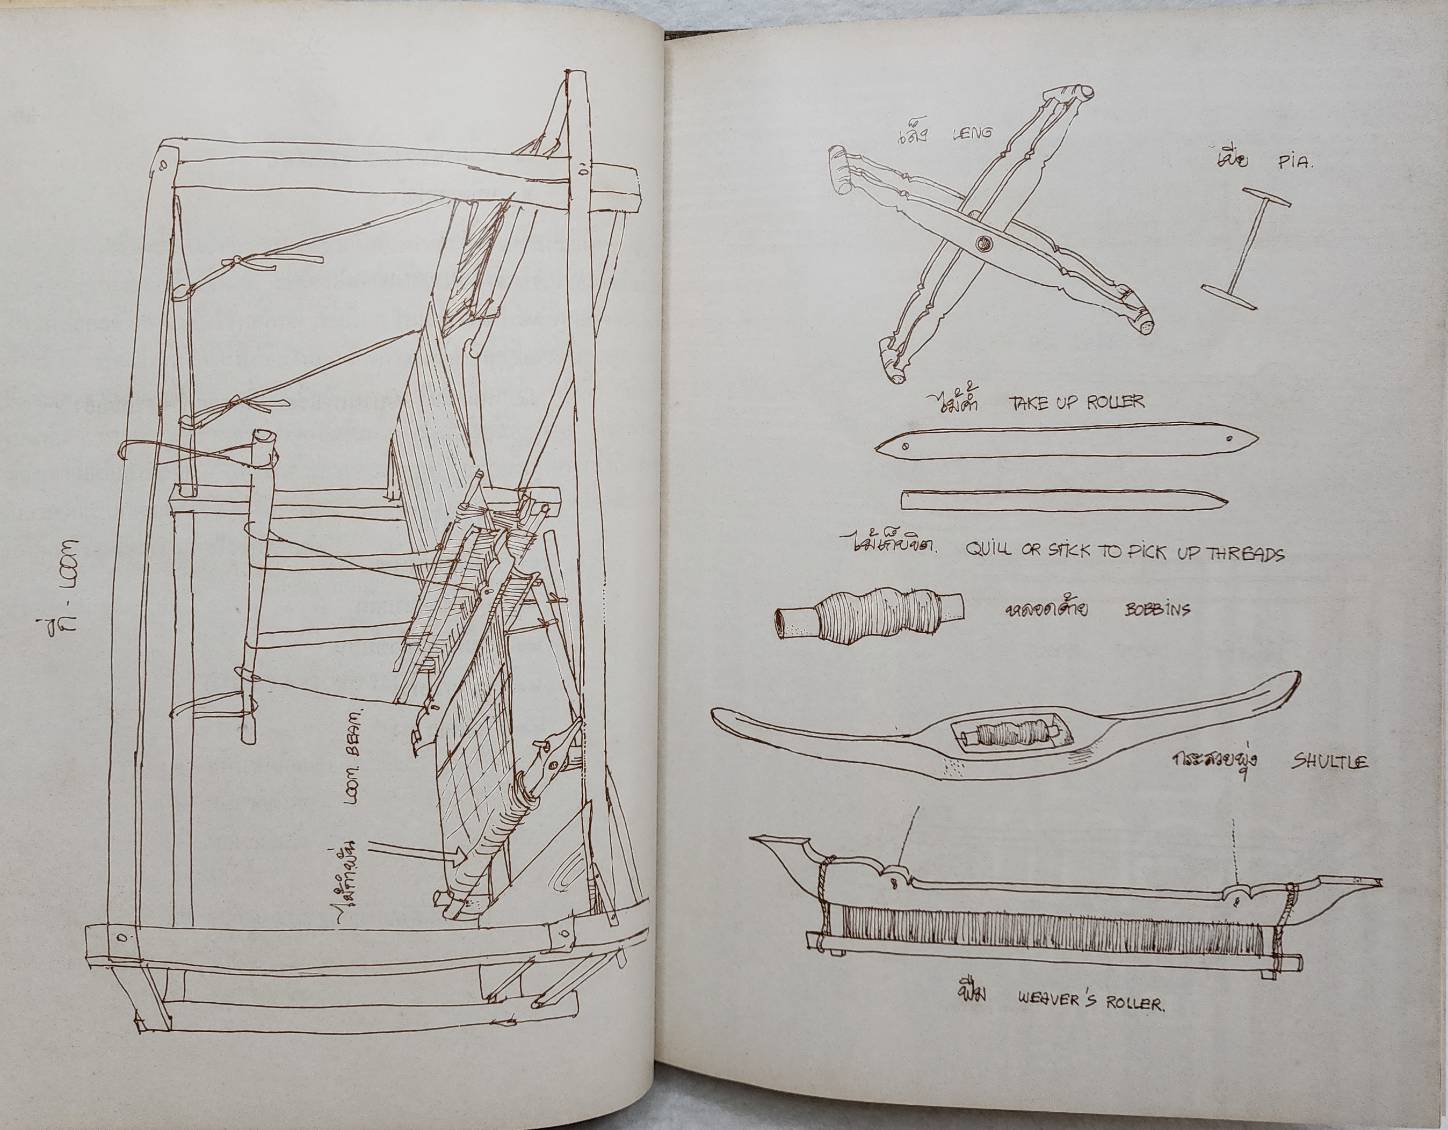 กี่ - LOOM
ไม้กำพั่น LOOM BEAM.
LENG
เปีย PIA.
ไม้ค้ำ TAKE UP ROLLER
ไม้เก็บขิด. QUILL OR STICK TO PICK UP THREADS
หลอดด้าย BOBBINS
กระสวยพุ่ง SHULTLE
ฟืม WEAVER'S ROLLER.